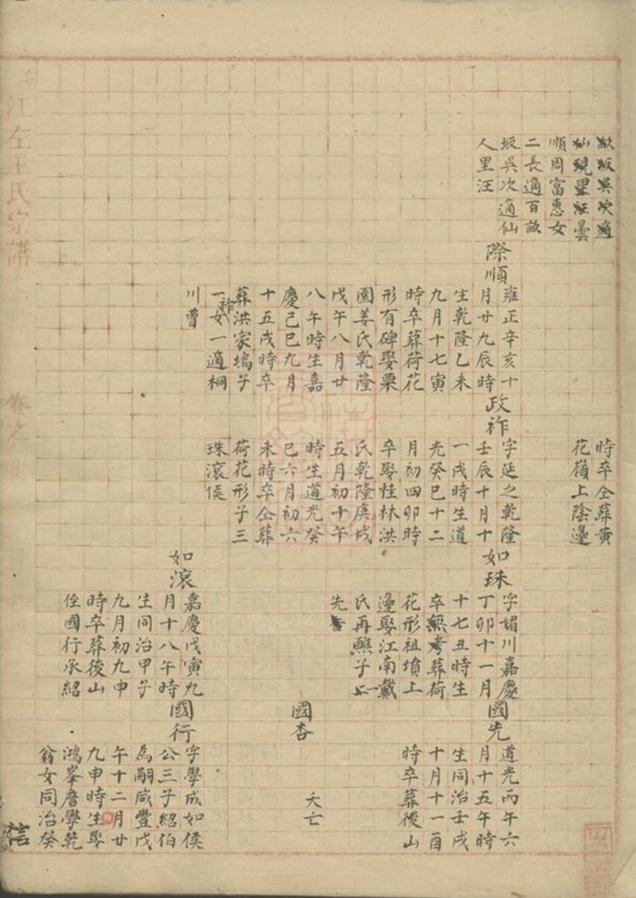 歙坂吳次適
仙硯里汪曇
順周富惠女
二長適百畝
坂吳次適仙
人里汪
時卒仝葬黃
花嶺上陰邊
際順
雍正辛亥十
月廿九辰時
生乾隆乙未
九月十七寅
時卒葬荷花
形有碑娶栗
園姜氏乾隆
戊午八月廿
八午時生嘉
慶己巳九月
十五戌時卒
葬洪家塢子
一祚女一適桐
川曹
政祚
字延之乾隆
壬辰十月十
一戌時生道
光癸巳十二
月初四卯時
卒娶桂林洪
氏乾隆庚戌
五月初十午
時生道光癸
巳六月初六
未時卒仝葬
荷花形子三
珠滾侯
如珠
字媚川嘉慶
丁卯十一月
十七丑時生
卒無考葬荷
花形祖墳上
邊娶江南戴
氏再醮子一
先
如滾
嘉慶戊寅九
月十八午時
生同治甲子
九月初九申
時卒葬後山
侄國行承紹
國先
道光丙午六
月十五午時
生同治壬戌
十月十一酉
時卒葬後山
國杏
夭亡
國行
字學成如侯
公三子紹伯
為嗣咸豐戊
午十二月廿
九申時生娶
鴻峯詹學乾
翁女同治癸
江左王氏宗譜
卷之
信